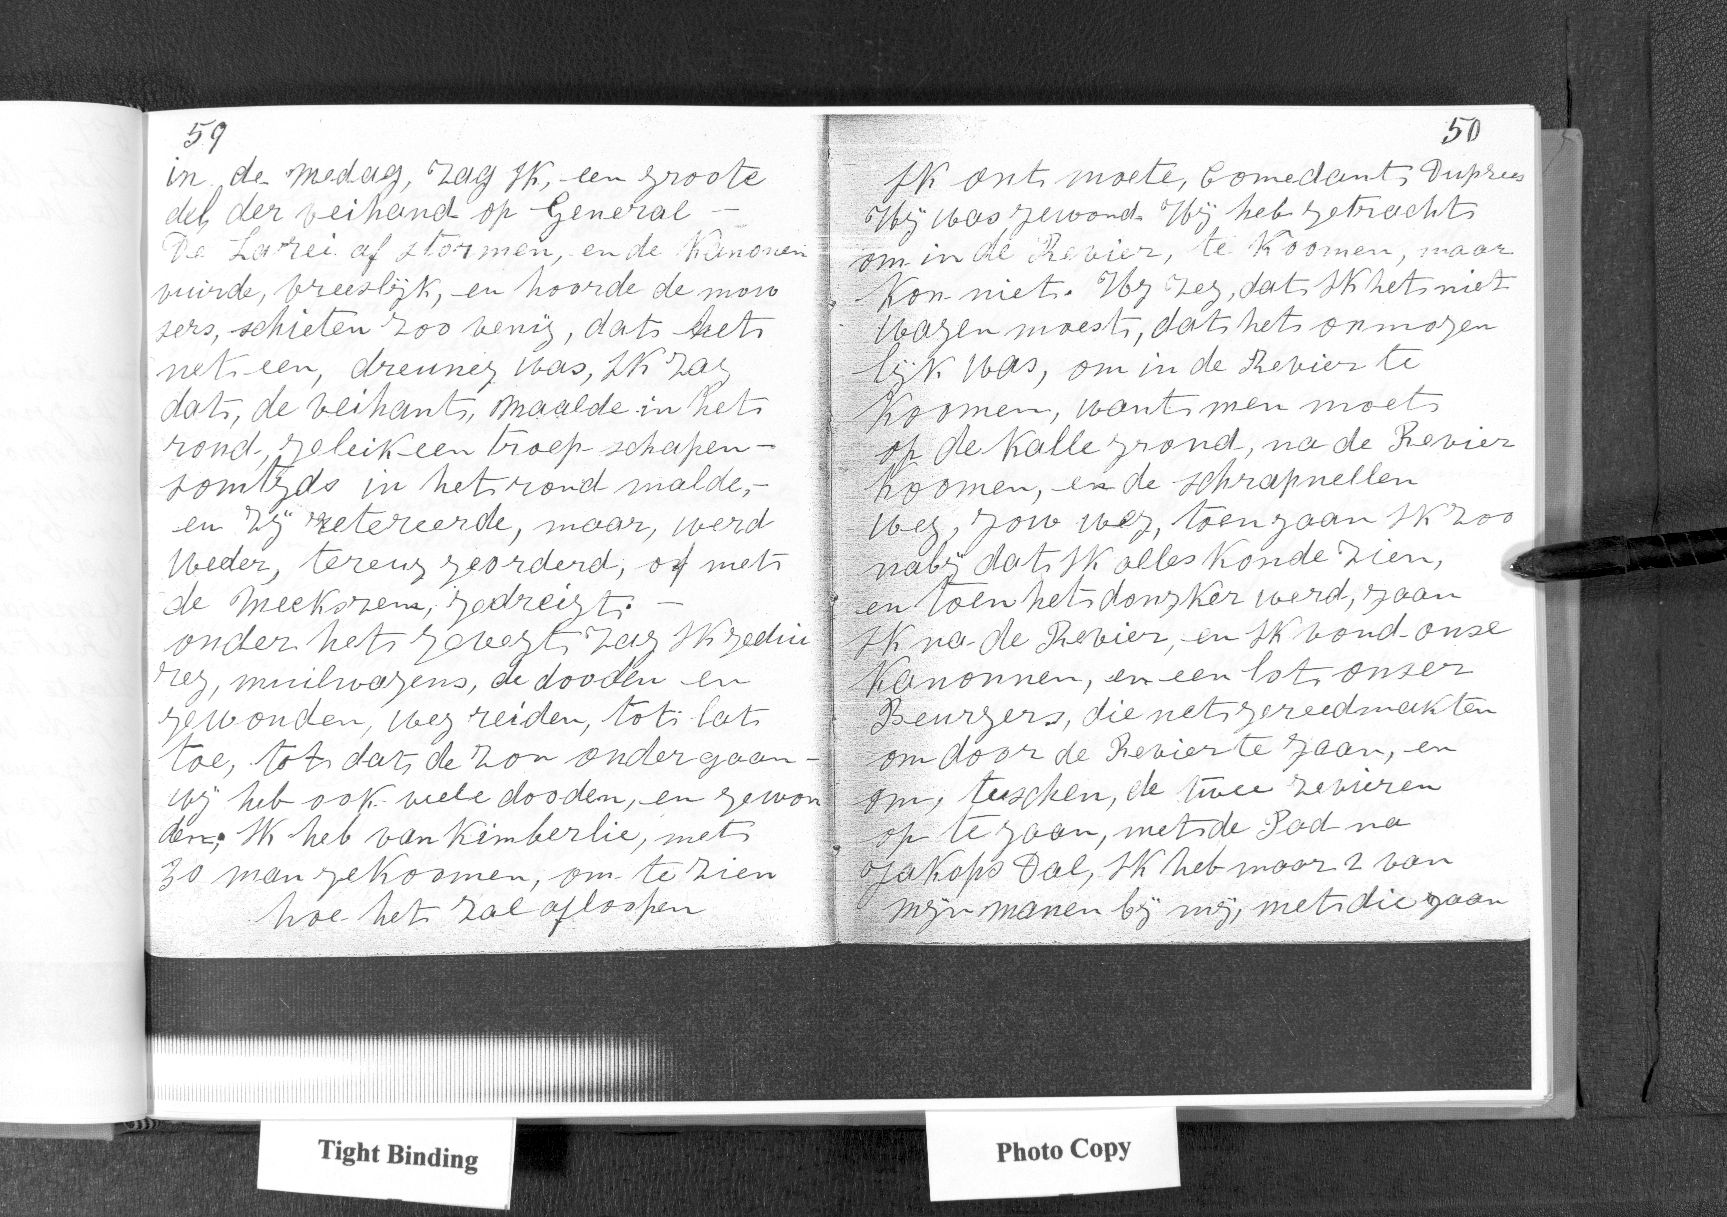 59
in de medag, zag Ik, een groote
del, der veihand op General —
De Larei af stormen, en de Kanonen
vuirde, vreeslijk, en hoorde de mow
sers, schieten zoo venig, dat het
net een, dreuneg was, Ik zag
dat, de veihant, maalde in het
rond, geleik een troep schapen —
somtyds in het rond malde, —
en zij retereerde, maar, werd
weder, tereug georderd, of met
de Meekszem, gedreigt. —
onder het gevegt zag Ik gediu
reg, muilwagens, de dooden en
gewonden, weg reiden, tot lat
toe, tot dat de zon ondergaan —
wij heb ook viele dooden, en gewon
den, Ik heb van Kimberlie, met
30 man gekoomen, om te zien
hoe het zal afloopen
50
Ik ont moete, Comedant Duprees
Hij was gewond. Hij heb getracht
om in de Revier, te Koomen, maar
Kon niet. Hij zeg, dat Ik het niet
wagen moest, dat het onmogen
lijk was, om in de Revier te
Koomen, want men moet
op de Kalle grond, na de Revier
Koomen, en de schrapnellen
weg, jow weg, toen gaan Ik zoo
nabij dat Ik alles Konde zien,
en toen het donker werd, gaan
Ik na de Revier, en Ik vond onse
Kanonnen, en een lot onser
Beurgers, die net gereedmakten
om door de Revier te gaan, en
om, tuschen, de twee revieren
op te gaan, met de Pad na
Jakops Dal, Ik heb maar 2 van
mijn manen bij mij, met die gaan
Tight Binding
Photo Copy